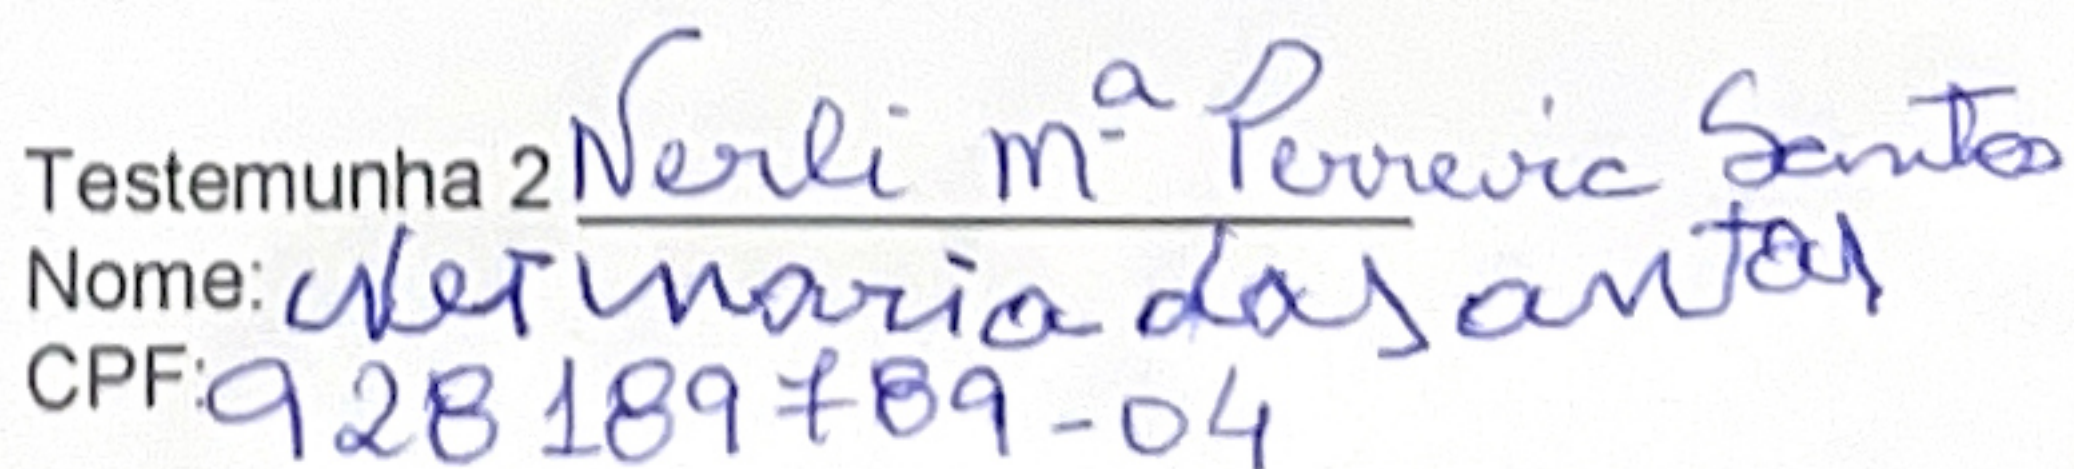 Testemunha 2 Nerli Mª Perreira Santos
Nome: Ner maria dos antos
CPF: 928 189 789-04